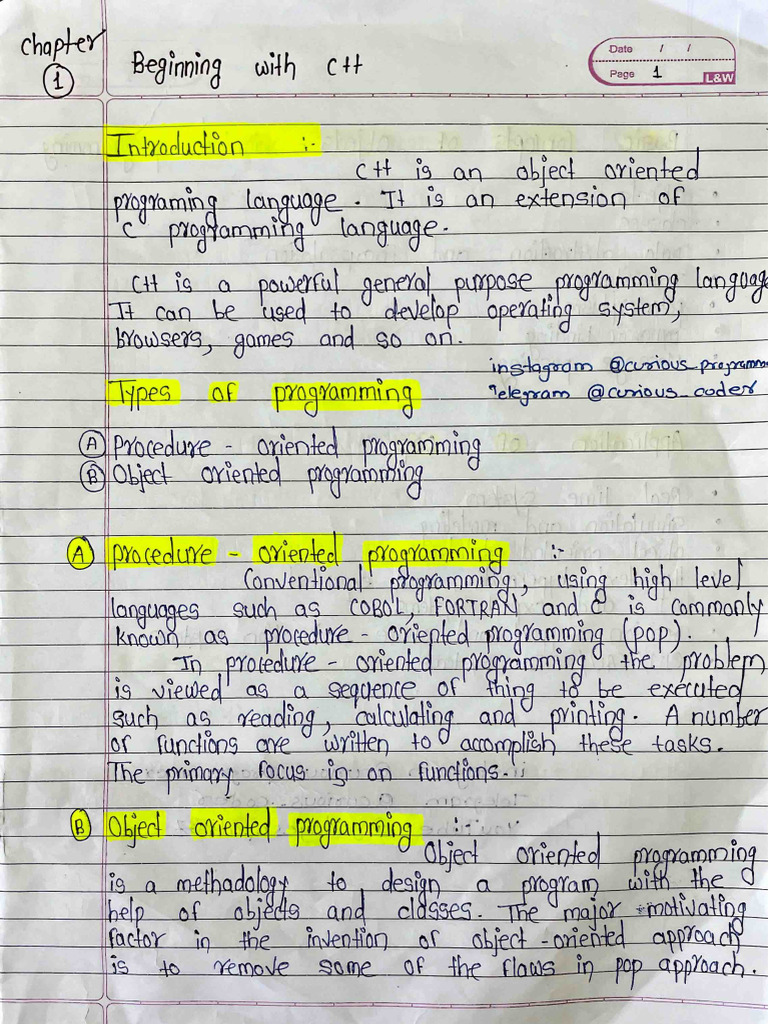 Chapter
1
Beginning with C++
Date / /
Page 1
L&W
Introduction :-
C++ is an object oriented
programing language. It is an extension of
C programming language.
C++ is a powerful general purpose programming languag
It can be used to develop operating system,
browsers, games and so on.
instagram @curious_programm
Telegram @curious_coder
Types of programming
A Procedure - oriented programming
B Object oriented programming
A procedure - oriented programming :-
Conventional programming, using high level
languages such as COBOL, FORTRAN and C is commonly
known as procedure - oriented programming (pop).
In procedure - oriented programming the problem
is viewed as a sequence of thing to be executed
such as reading, calculating and printing. A number
of functions are written to accomplish these tasks.
The primary focus is on functions.
B Object oriented programming :-
Object oriented programming
is a methodology to design a program with the
help of objects and classes. The major motivating
factor in the invention of object-oriented approach
is to remove some of the flaws in pop approach.